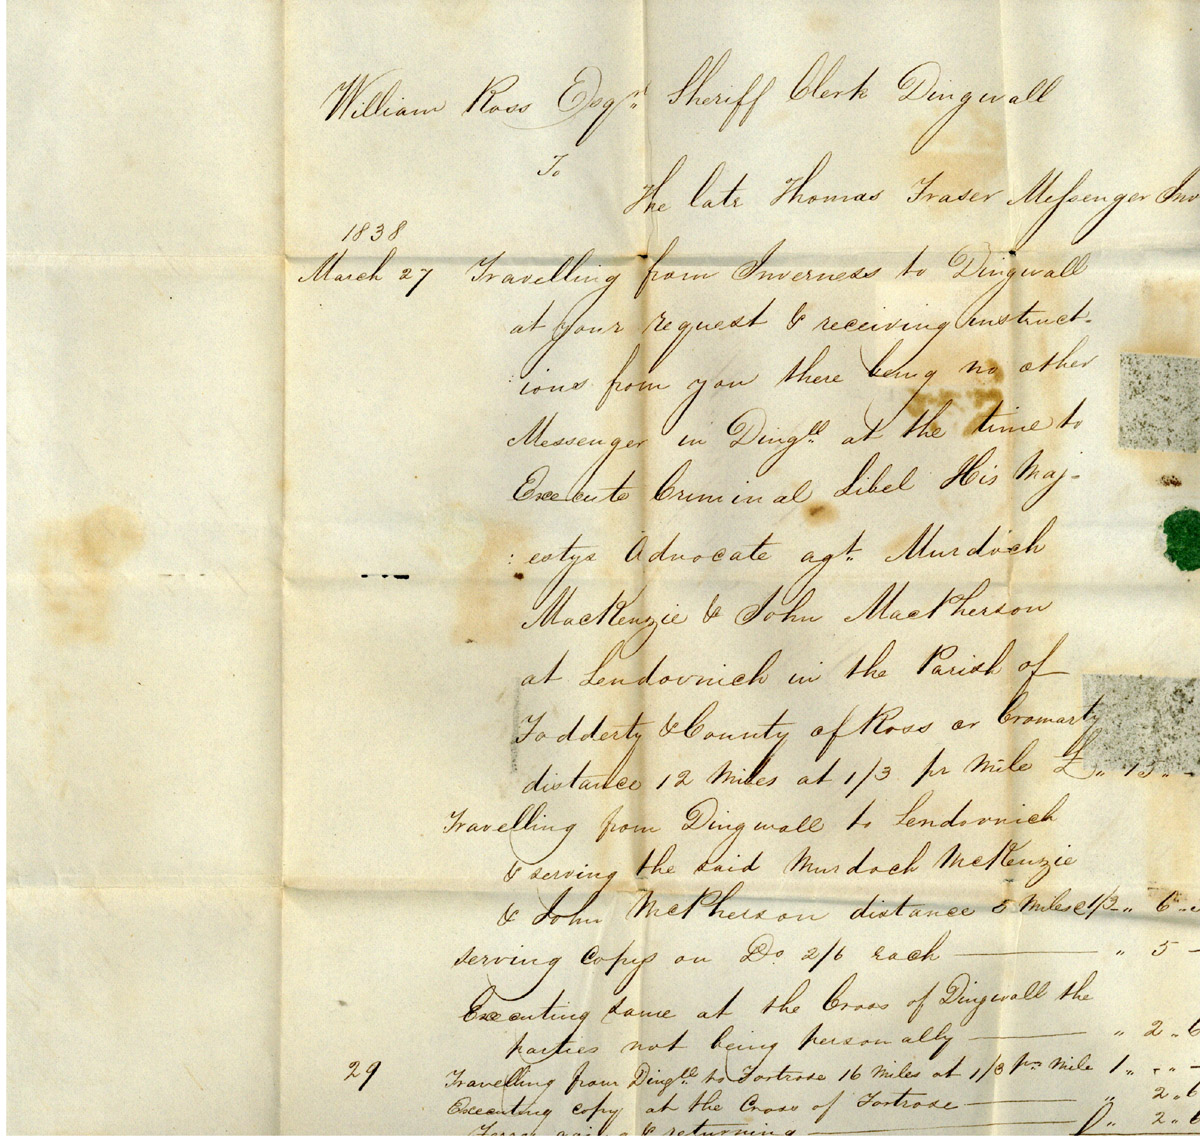 William Ross Esqr. Sheriff Clerk Dingwall
To
The late Thomas Fraser Messenger Inv
1838
March 27 Travelling from Inverness to Dingwall
at your request & receiving instruct-
:ions from you there being no other
Messenger in Dingll at the time to
Execute Criminal Libel His Maj-
:estys Advocate agt. Murdoch
MacKenzie & John MacPherson
at Lendovnich in the Parish of
Fodderty & County of Ross or Cromarty
distance 12 Miles at 1/3 pr Mile £ „ 15 „ -
Travelling from Dingwall to Lendovnich
& serving the said Murdoch McKenzie
& John McPherson distance 5 Miles @ 1/3 - „ 6 „ 3
serving copys on Do. 2/6 each — „ 5 -
Executing same at the Cross of Dingwall the
parties not being personally — „ 2 „ 6
29 Travelling from Dingll to Fortrose 16 Miles at 1/3 pr Mile 1 „ - „ -
Executing copy at the Cross of Fortrose — „ 2 „ 6
& returning — „ 2 „ 6